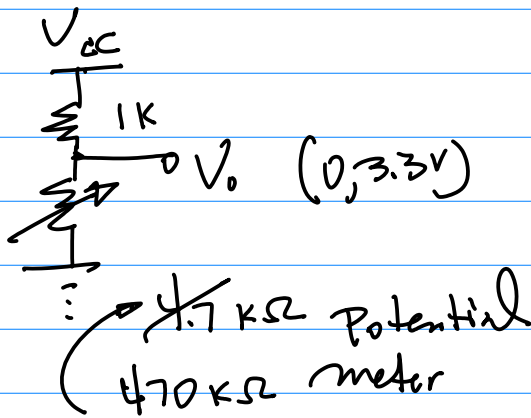 Vcc
1K
Vo (0,3.3V)
4.7 KΩ potential
470 KΩ meter